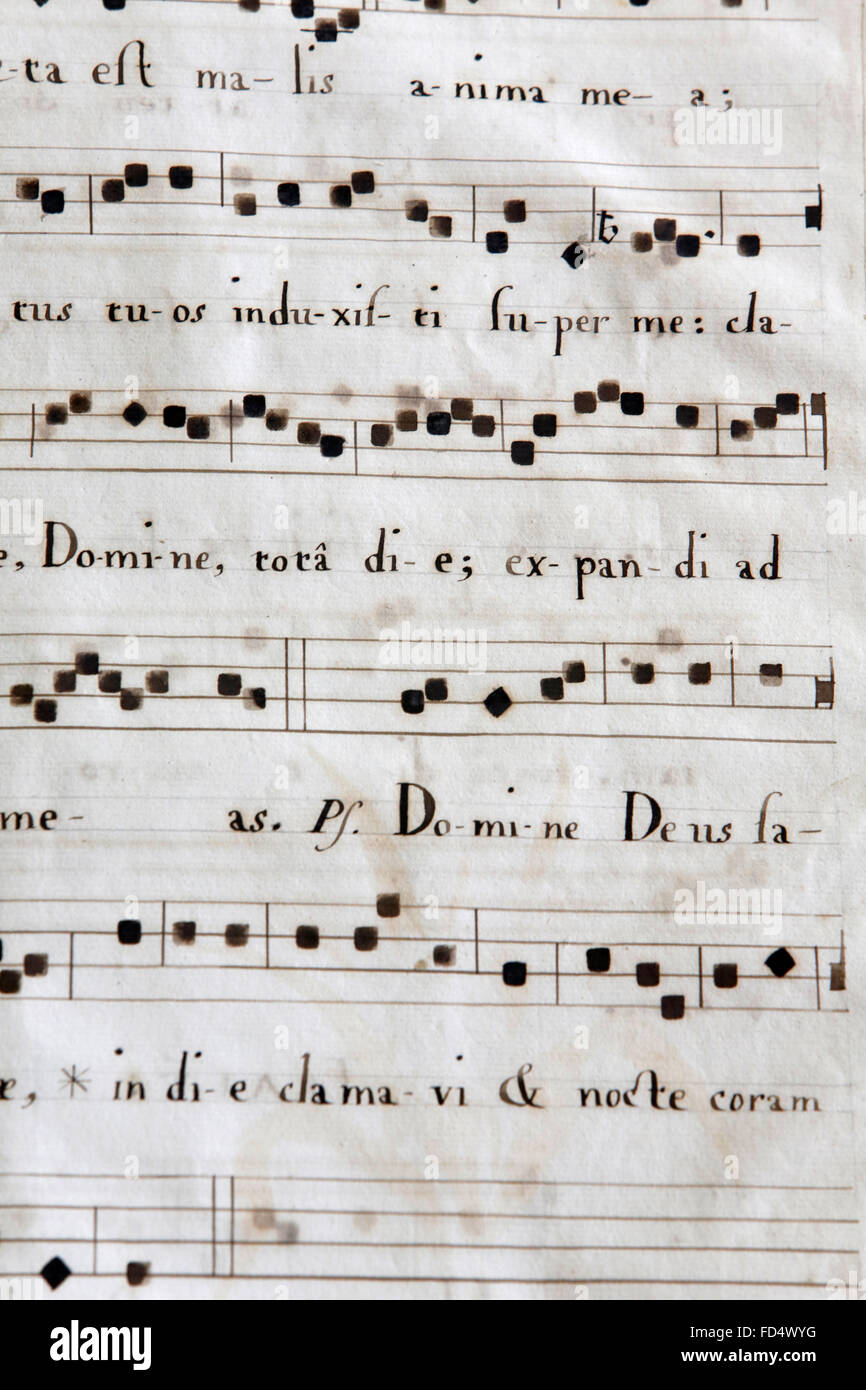 -ta eſt ma- lis a-nima me- a;
tus tu-os indu-xiſ- ti ſu-per me: cla-
e, Do-mi-ne, totâ di- e; ex-pan-di ad
me- as. Pſ. Do-mi-ne Deus ſa-
æ, * in di- e clama- vi & nocte coram
alamy
Image ID: FD4WYG
www.alamy.com